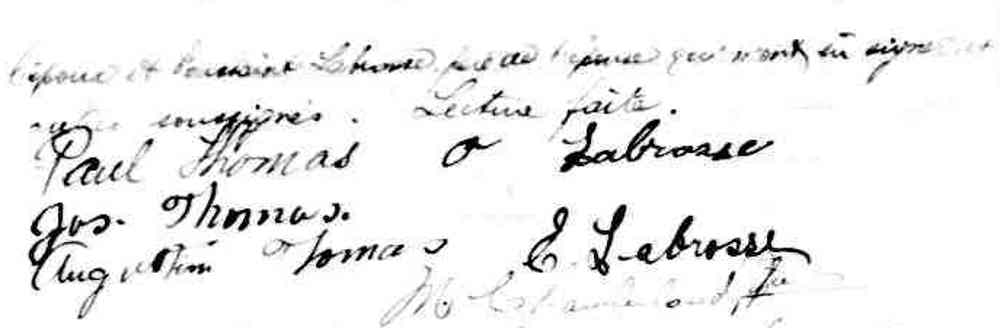 l'épouse et Toussaint Labrosse, père de l'épouse qui n'ont su signer et
soussignés. Lecture faite.
Paul Thomas O Labrosse
Jos. Thomas.
Augustin Thomas E. Labrosse
M. Ptre